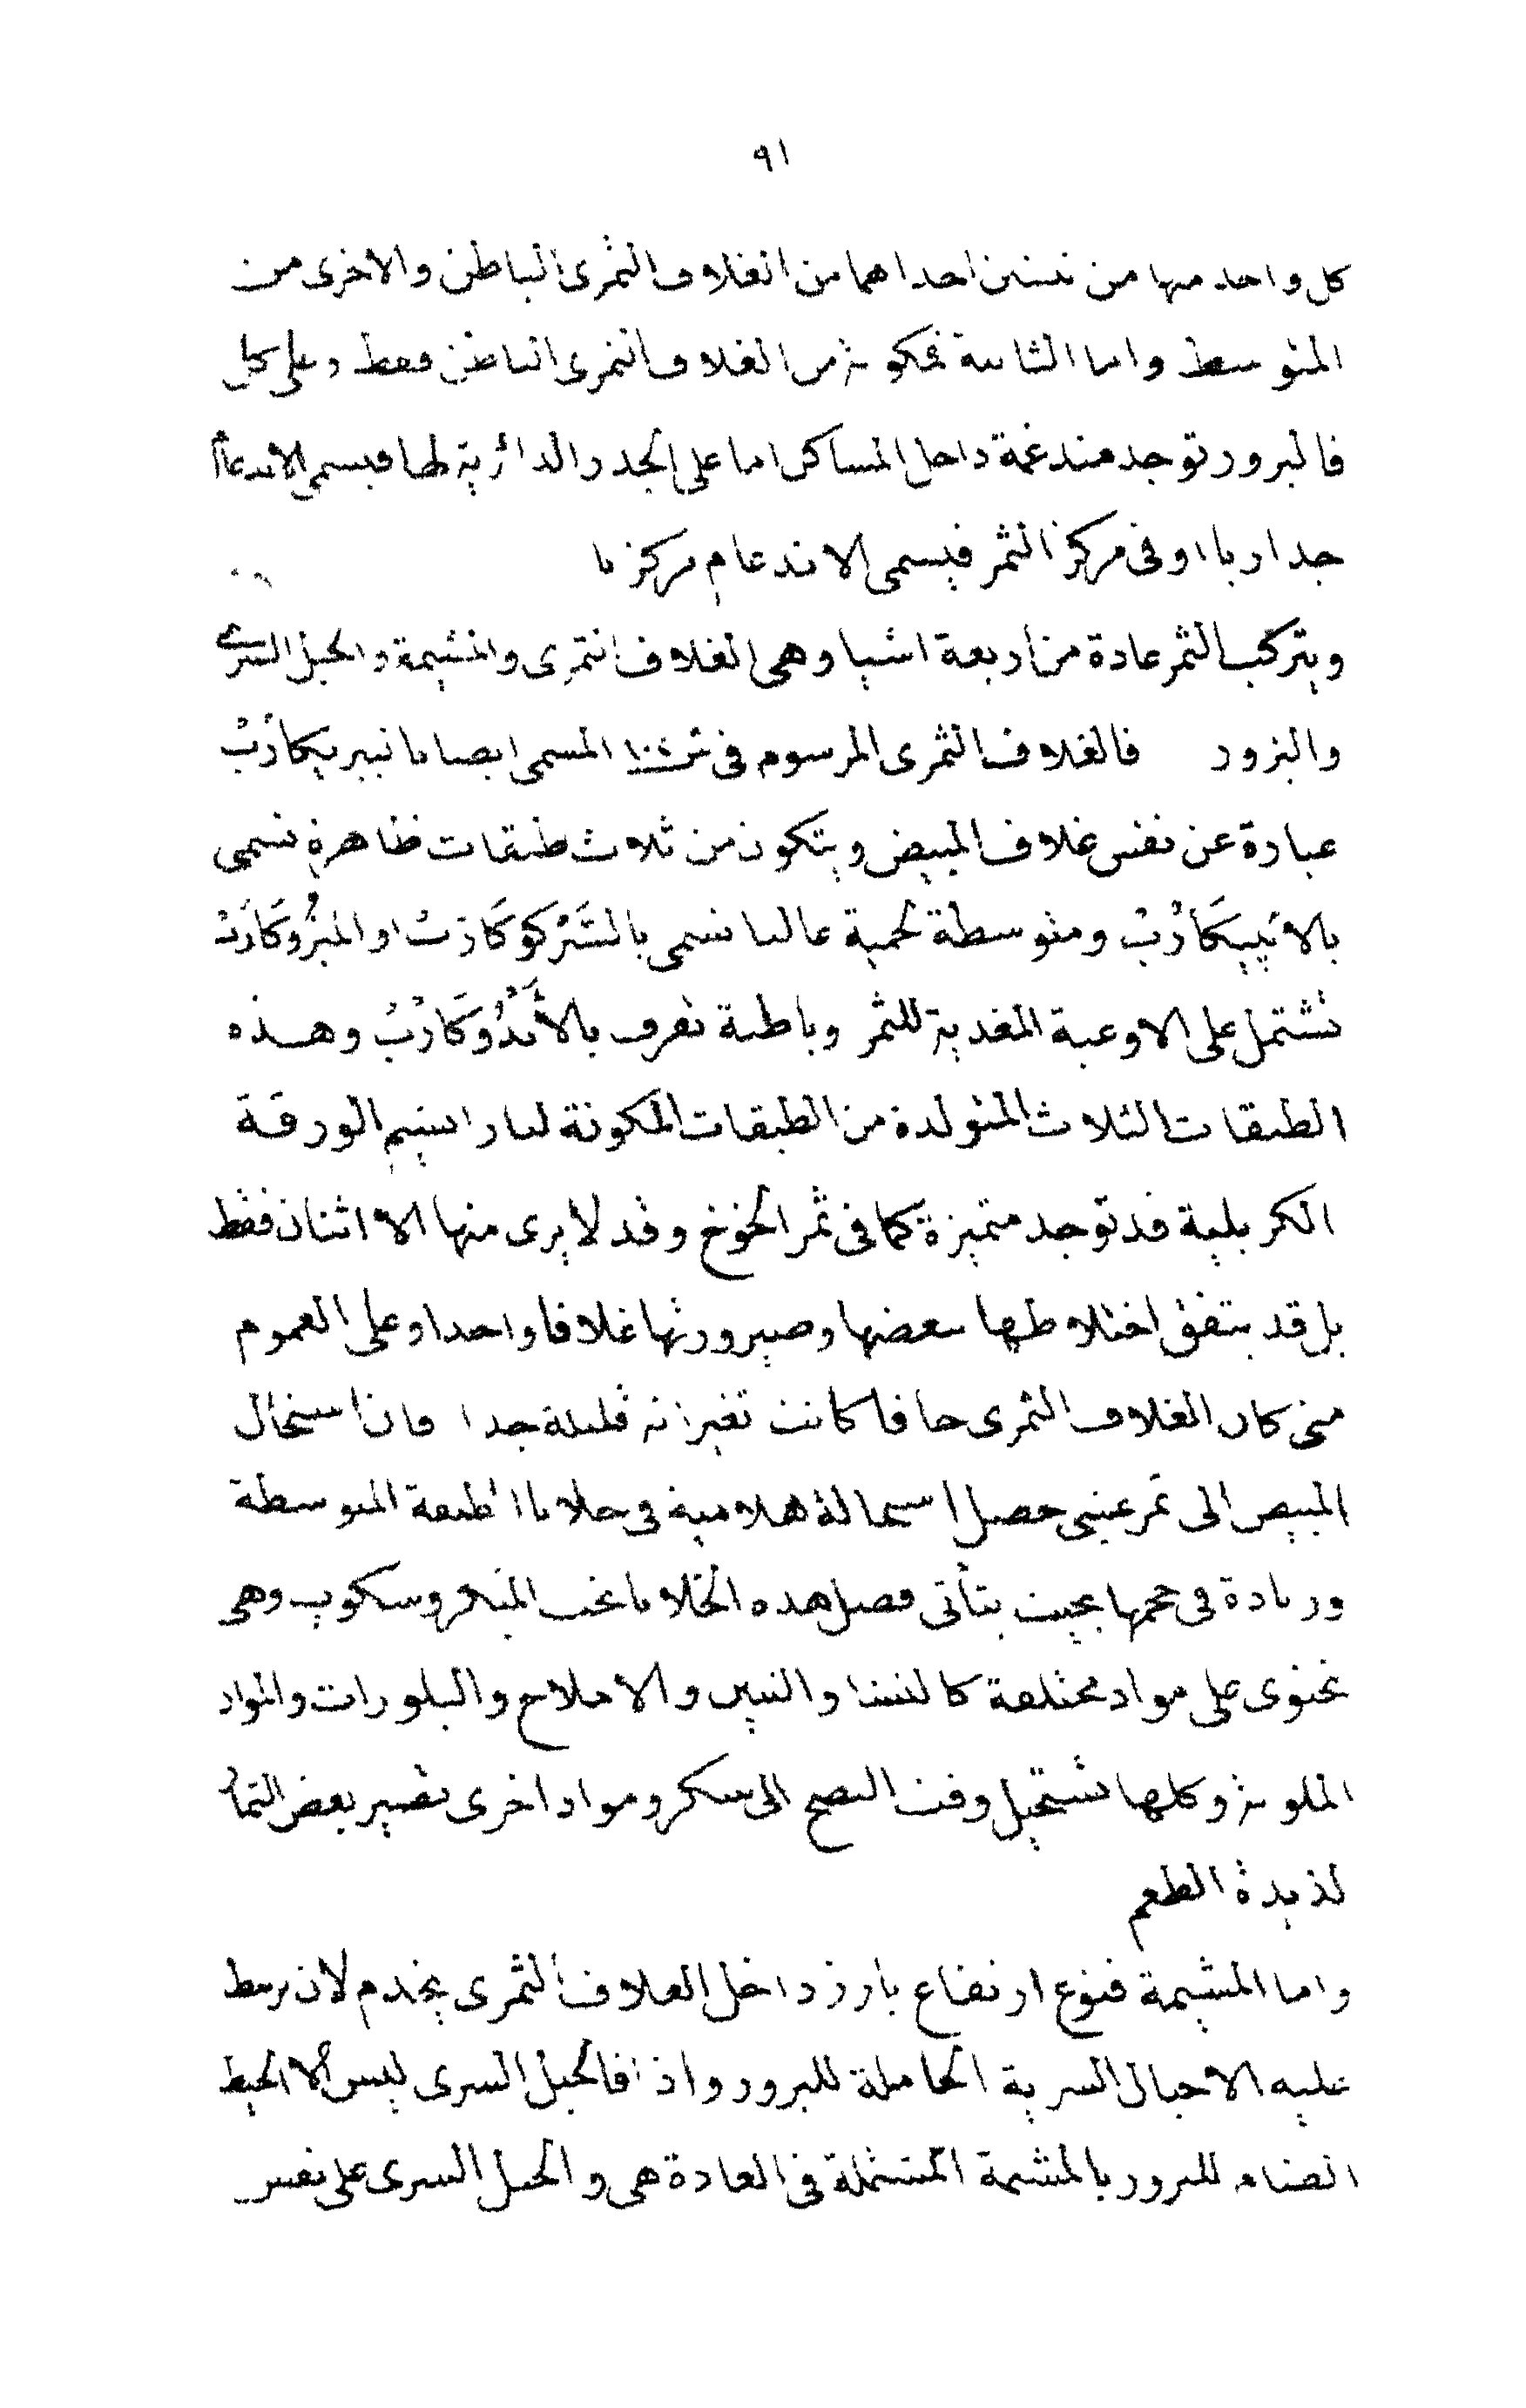 ٩١
كل واحد منها من ثنيتين احداهما من الغلاف الثمرى الباطن والاخرى من
المتوسط واما الثانية فمكونة من الغلاف الثمرى الباطن فقط وعلى كل
فالبزور توجد مندغمة داخل المساكن اما على الجدر الدائرية لها فيسمى الاندغام
جداريا او فى مركز الثمر فيسمى الاندغام مركزيا
ويتركب الثمر عادة من اربعة اشيا وهى الغلاف الثمرى والمشيمة والحبل السرى
والبزور فالغلاف الثمرى المرسوم فى المسمى ايضا بالبيريكارْبْ
عبارة عن نفس غلاف المبيض ويتكون من ثلاث طبقات ظاهرة تسمى
بالاپيكَارْبْ ومتوسطة لحمية غالبا تسمى بالسَّرْكوكَارْبْ او المِزُوكَارْبْ
تشتمل على الاوعية المغذية للثمر وباطنة تعرف بالأَنْدُوكَارْبْ وهذه
الطبقات الثلاث المتولدة من الطبقات المكونة لبارانشيم الورقة
الكربلية قد توجد متميزة كما فى ثمر الخوخ وقد لا يرى منها الا اثنان فقط
بل قد يتفق اختلاطها ببعضها وصيرورتها غلافا واحدا وعلى العموم
متى كان الغلاف الثمرى جافا كانت تغيراته قليلة جدا فان استحال
المبيض الى ثمر عنبى حصل استحالة هلامية فى خلايا الطبقة المتوسطة
وزيادة فى حجمها بحيث يتأتى فصل هذه الخلايا تحت الميكروسكوب وهى
تحتوى على مواد مختلفة كالنشا والتنين والاملاح والبلورات والمواد
الملونة وكلها تستحيل وقت النضج الى سكر ومواد اخرى تصير بعض الثمار
لذيذة الطعم
واما المشيمة فنوع ارتفاع بارز داخل الغلاف الثمرى يخدم لان يربط
عليه الاحبال السرية الحاملة للبزور واذا فالحبل السرى ليس الا الخيط
الضام للبزور بالمشيمة المشتملة فى العادة هى والحبل السرى على نفس